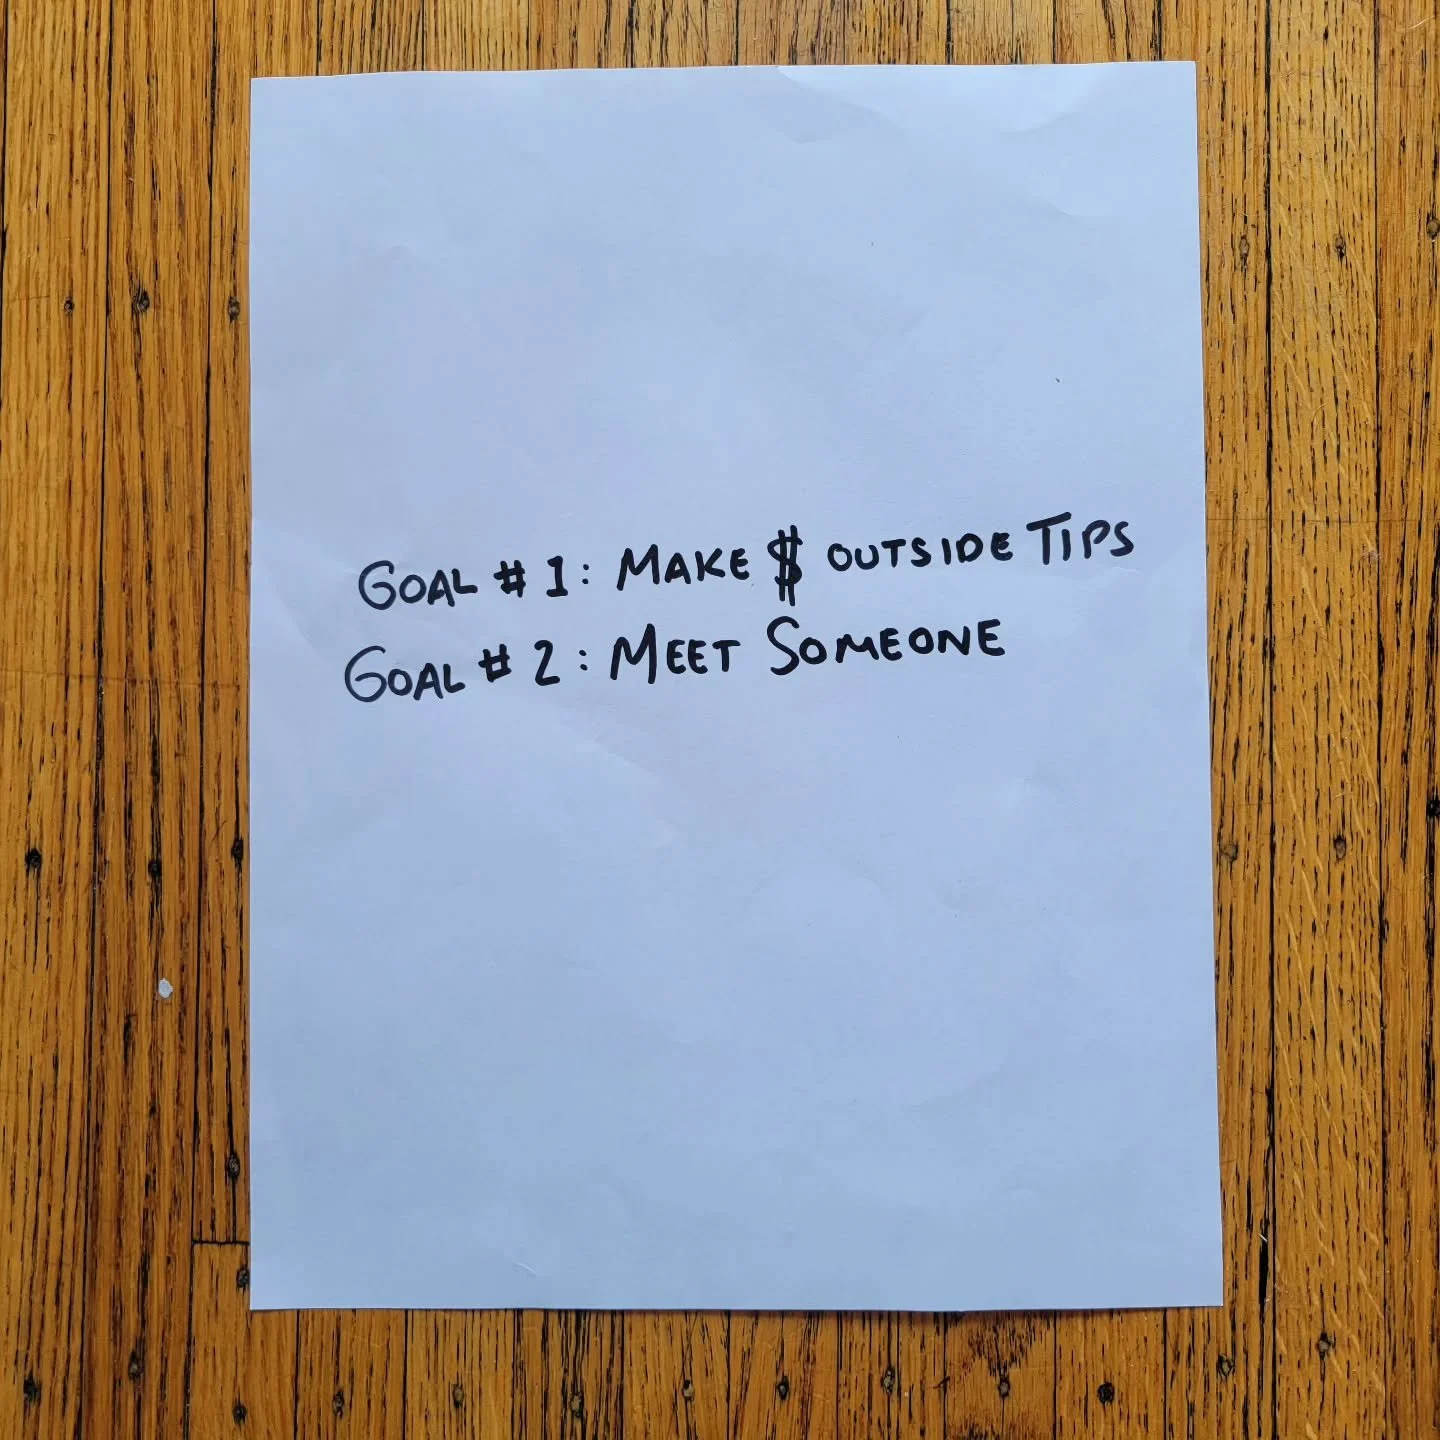 GOAL # 1: MAKE $ OUTSIDE TIPS
GOAL # 2: MEET SOMEONE